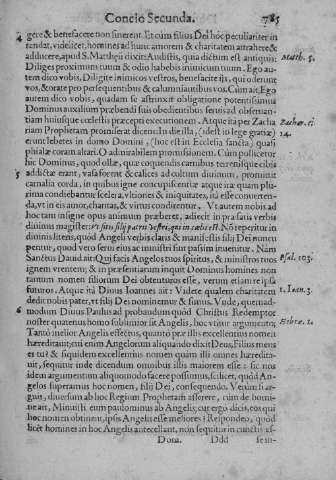 Concio Secunda. 785
gere & benefacere non sinerent. Et cum filius Dei hoc peculiariter in
tendat, videlicet, homines ad hunc amorem & charitatem attrahere &
adducere, apud S. Matthęũ dixit: Audistis, quia dictum est antiquis: Matth. 5.
Diliges proximum tuum & odio habebis inimicum tuum. Ego au-
tem dico vobis, Diligite inimicos vestros, benefacite ijs, qui oderunt
vos, & orate pro persequentibus & calumniantibus vos. Cum ait, Ego
autem dico vobis, quadam se astrinxit obligatione potentissimus
Dominus auxilium præbendi suis obedientibus servis ad observan-
tiam huiusque cœlestis præcepti executionem. Atque ita per Zacha Zachar. ci
riam Prophetam promiserat dicendo: In die illa, (id est in lege gratiæ) 14.
erunt lebetes in domo Domini, (hoc est in Ecclesia sancta) quasi
phialæ coram altari. O admirabilem promissionem! Cum pollicetur
hic Dominus, quod ollæ, quæ coquendis carnibus terrenisque cibis
5 addictæ erant, vasa forent & calices ad cultum divinum, promittit
carnalia corda, in quibus igne concupiscentiæ atque iræ quam plu-
rima condiebantur scelera, vltiones & iniquitates, ita esse conuerten-
da, vt in eis amor, charitas, & virtus condirentur. Vt autem nobis ad
hoc tam insigne opus animum præberet, adiecit in præfatis verbis
divinus magister: vt sitis filij patris vestri, qui in cœlis est. Nõ reperitur in
divinis literis, quod Angeli verbis claris & manifestis filij Dei nuncu
pentur, quod vero servi eius ac ministri sint passim inuenitur. Nam
Sanctus Dauid ait: Qui facis Angelos tuos spiritus, & ministros tuos Psal. 103.
ignem vrentem; & in præsentiarum inquit Dominus homines non
tantum nomen filiorum Dei obtenturos esse, verum etiam re ipsa
futuros. Atque ità Divus Ioannes ait: Videte qualem charitatem 1. Ioan. 3.
dedit nobis pater, vt filij Dei nominemur & simus. Vnde, quemad-
6 modum Divus Paulus ad probandum quòd Christus Redemptor
noster quatenus homo sublimior sit Angelis, hoc vtitur argumento; Hebræ. 1.
Tantò melior Angelis effectus, quanto præ illis excellentius nomen
hæreditauit; cui enim Angelorum aliquando dixit Deus, Filius meus
es tu? & siquidem excellentius nomen quàm illi omnes hæredita-
uit, sequitur inde dicendum omnibus illis maiorem esse: sic nos
idem argumentum aliquomodo facere possumus, scilicet, quòd An-
gelos superamus hoc nomen, filij Dei, consequendo. Verum si ar-
guis, diuersum ab hoc Regium Prophetam asserere, eum de homi-
ne ait, Minuisti eum paulominus ab Angelis, cur ergo dicis, eos qui
hoc nomen obtinent, ipsis Angelis esse meliores? Respondeo, quòd
licèt homines in hoc Angelis antecellant, non sequitur in cunctis ex-
Dona. Ddd